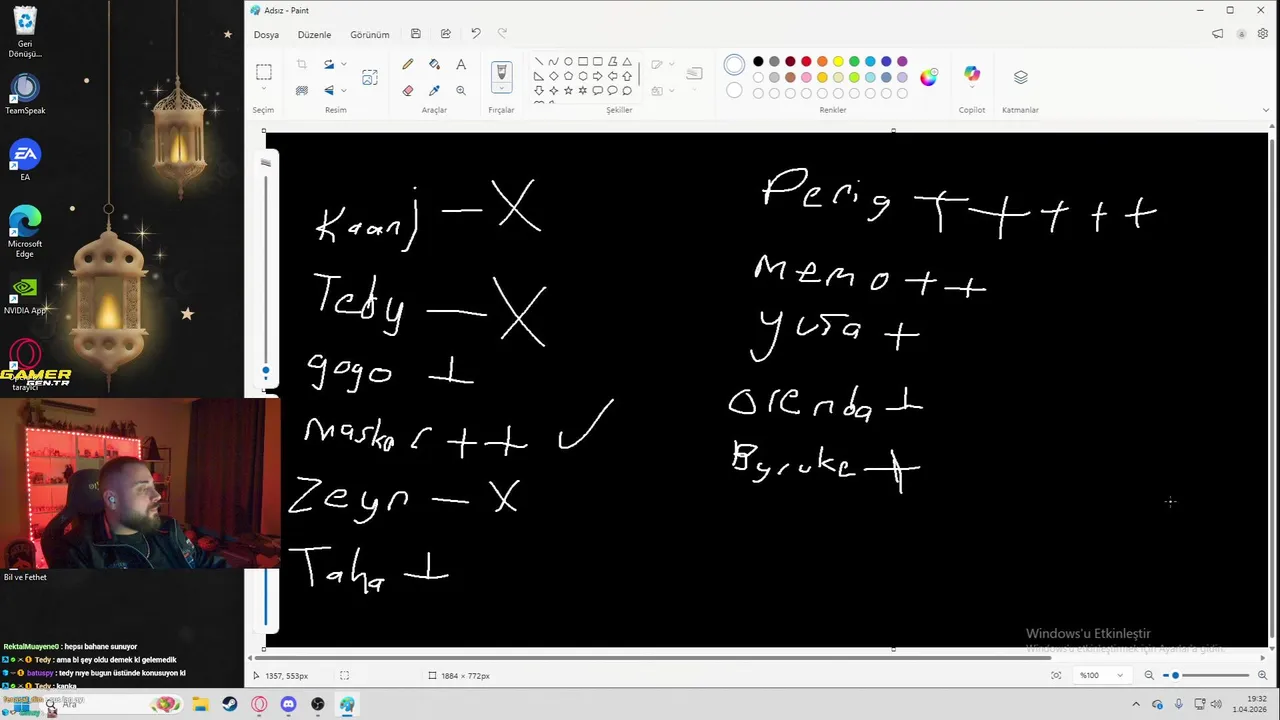 Adsız - Paint
Dosya Düzenle Görünüm
Seçim Resim Araçlar Fırçalar Şekiller Renkler Copilot Katmanlar
Geri Dönüşü...
TeamSpeak
EA
Microsoft Edge
NVIDIA App
GAMER
GEN.TR
tarayıcı
Bil ve Fethet
Kaanj — X
Tedy — X
gogo +
maskar ++ ✓
Zeyn — X
Taha +
Perig +++++
memo ++
yusa +
orenda +
Byruke +
RektalMuayene0 : hepsi bahane sunuyor
Tedy : ama bi şey oldu demek ki gelemedik
batuspy : tedy niye bugun üstünde konusuyon ki
Tedy : kanka
Windows'u Etkinleştir
Windows'u etkinleştirmek için Ayarlar'a gidin.
1357, 553px 1884 × 772px %100
Ara
19:32
1.04.2026